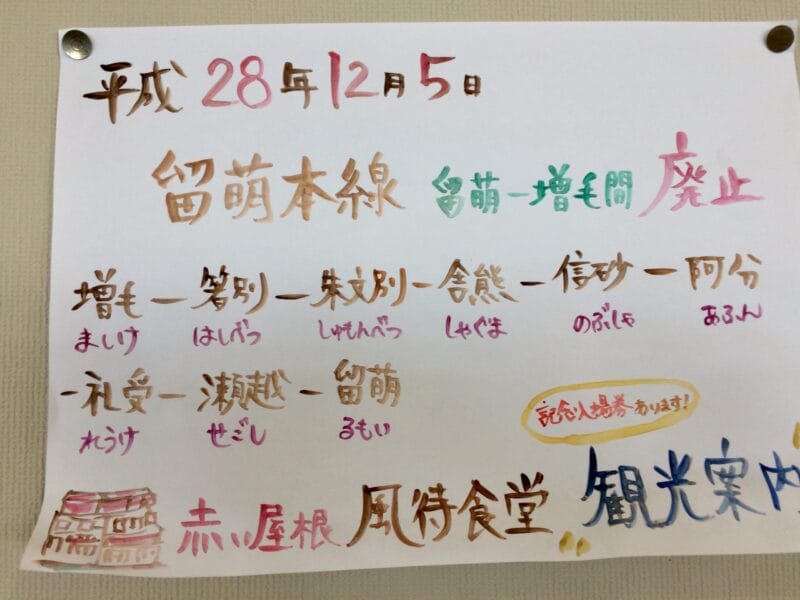 平成28年12月5日
留萌本線 留萌ー増毛間 廃止
増毛ー箸別ー朱文別ー舎熊ー信砂ー阿分
ましけ はしべつ しゅもんべつ しゃぐま のぶしゃ あふん
ー礼受ー瀬越ー留萌
れうけ せごし るもい
記念入場券あります!
赤い屋根 風待食堂 観光案内